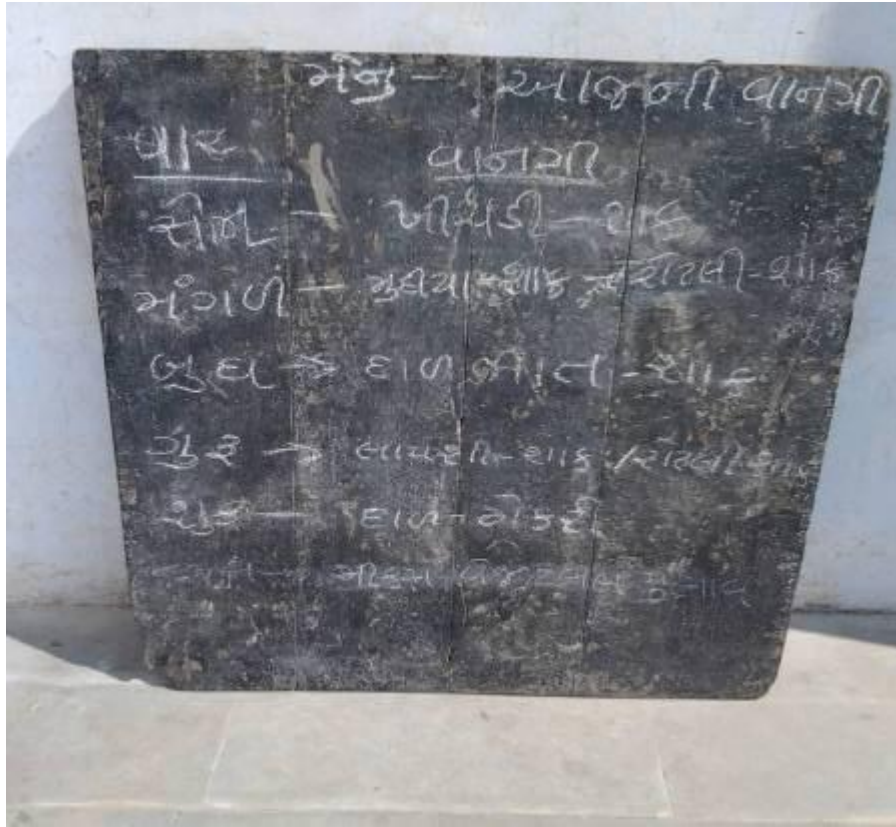 મેનુ - આજની વાનગી
વાર વાનગી
સોમ - ખીચડી - શાક
મંગળ - મુઠીયા - શાક / રોટલી - શાક
બુધ → દાળ ભાત - શાક
ગુરુ → લાપશી - શાક / રોટલી શાક
શુક્ર - દાળ - ઢોકળી
પુલાવ